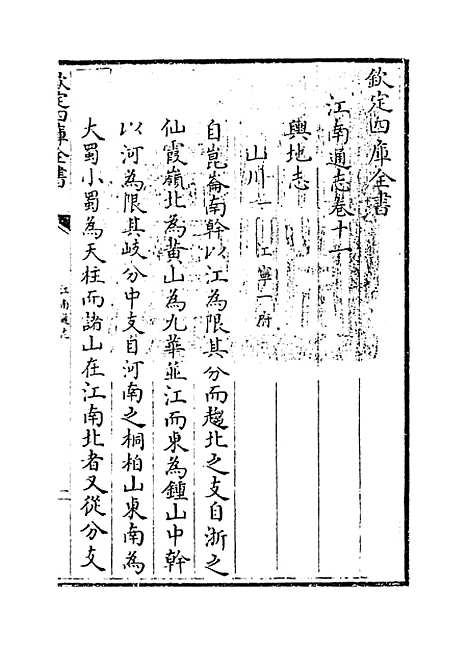 欽定四庫全書
江南通志卷十一
輿地志
山川一 江寧一府
自崑崙南幹以江為限其分而趨北之支自浙之
仙霞嶺北為黃山為九華並江而東為鍾山中幹
以河為限其岐分中支自河南之桐柏山東南為
大蜀小蜀為天柱而諸山在江南北者又從分支
欽定四庫全書
江南通志